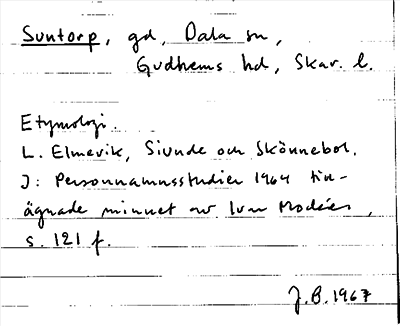 Suntorp, gd, Dala sn,
Gudhems hd, Skar. l.
Etymologi.
L. Elmevik, Siunde och Skönnebol.
I: Personnamnsstudier 1964 till-
ägnade minnet av Ivar Modéer,
s. 121 f.
J.B. 1967